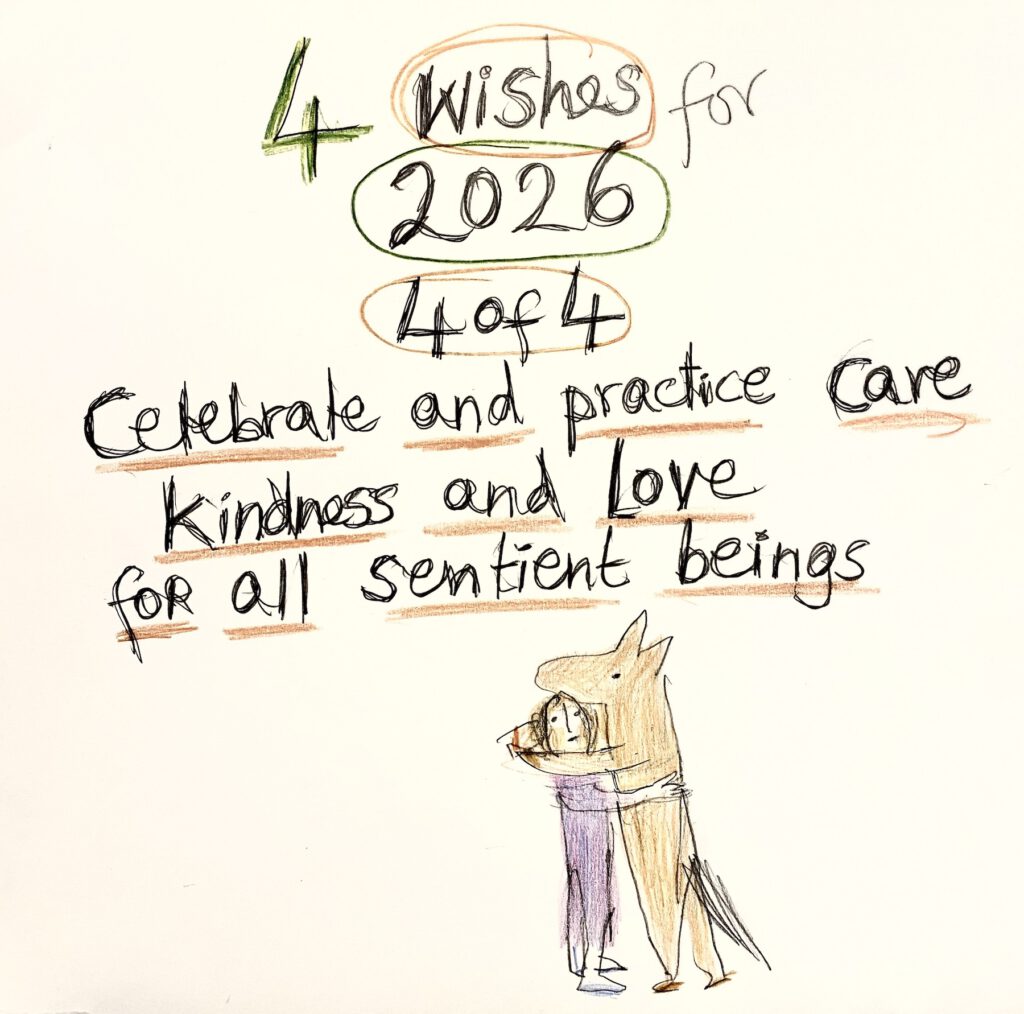 4 Wishes for
2026
4 of 4
Celebrate and practice Care
Kindness and Love
for all sentient beings